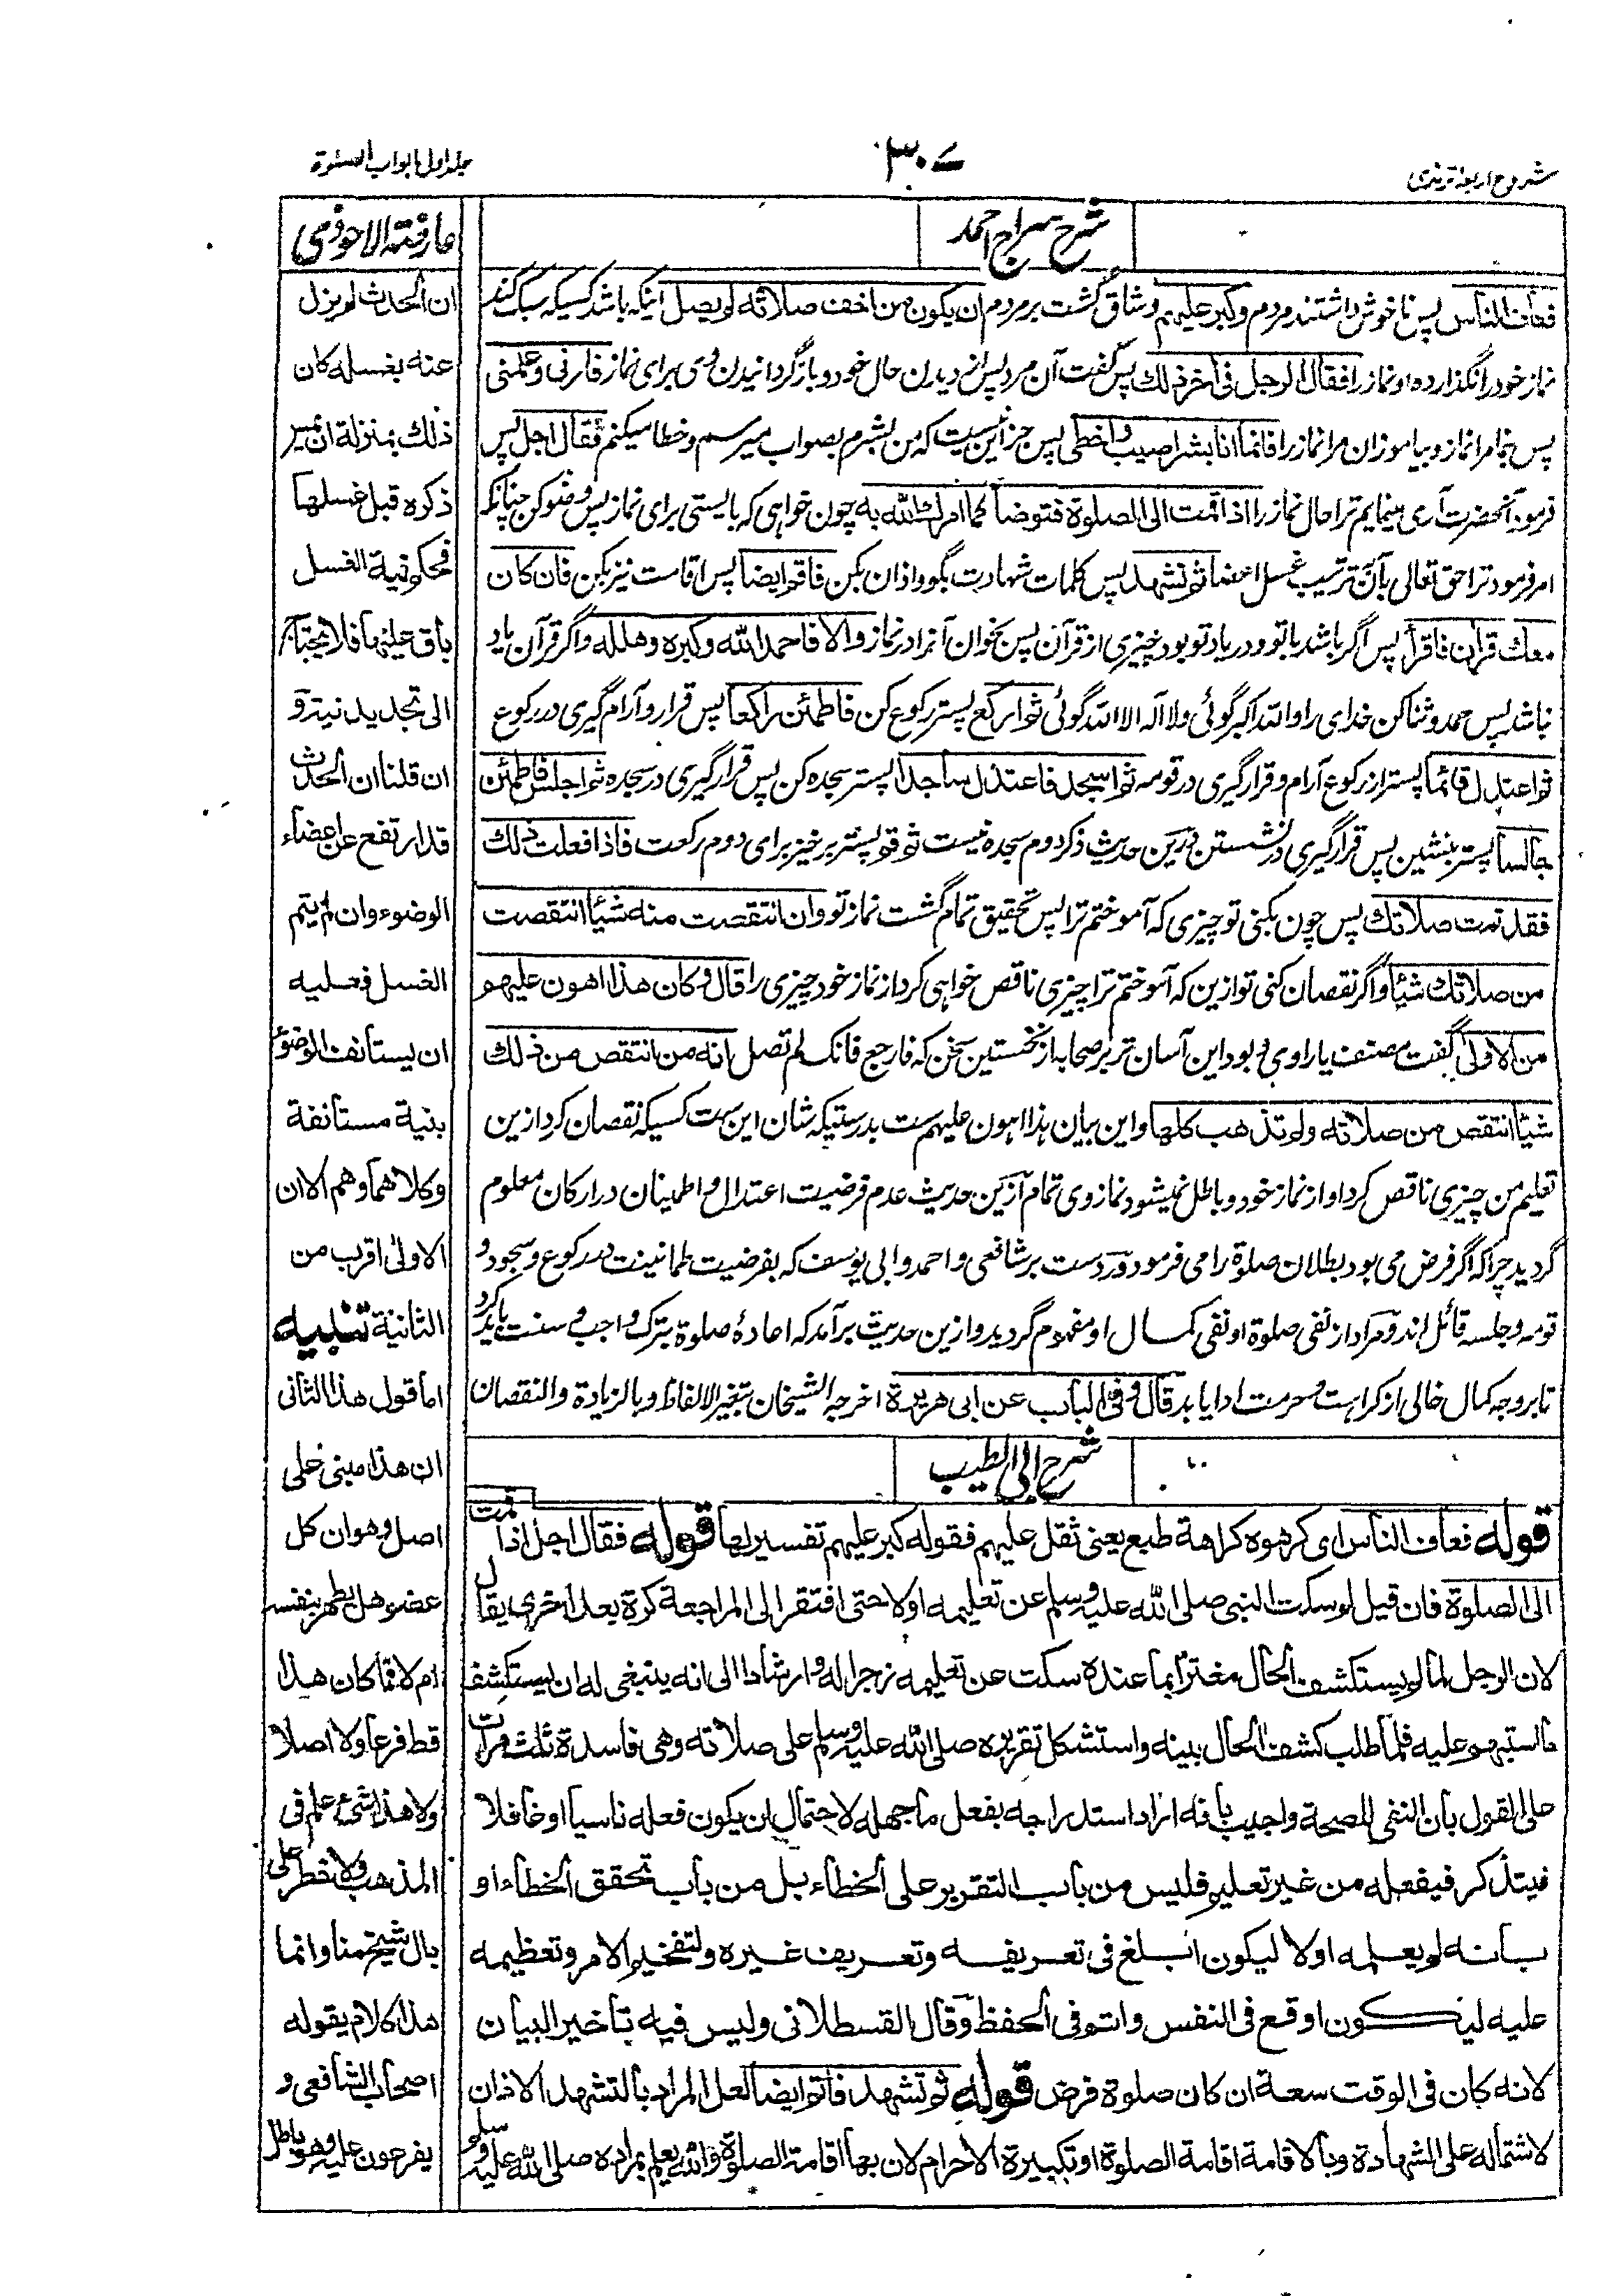 شروح اربعہ ترمذی
۳۰۷
جلد اول ابواب الصلوة
شرح سراج احمد
فعاف الناس پس ناخوش داشتند مردم وکبر علیهم وشاق گشت بر مردم ان یکون من اخف صلاته لم یصل اینکه باشد کسیکه سبک کند
نماز خود را نگذارده او نماز را فقال الرجل فی آخر ذلك پس گفت آن مرد پس از دیدن حال خود و بازگردانیدن وی برای نماز فارنی وعلمنی
پس بنما مرا نماز و بیاموزان مرا نماز را فانما انا بشر اصیب واخطی پس جز این نیست که من بشرم بصواب میرسم و خطا میکنم فقال اجل پس
فرمود آنحضرت آری مینمایم ترا حال نماز را اذا قمت الی الصلوة فتوضأ کما امرك الله به چون خواهی که بایستی برای نماز پس وضو کن چنانکه
امر فرمود ترا حق تعالی بآن ترتیب غسل اعضا ثم تشهد پس کلمات شهادت بگو واذان بکن فاقم ایضا پس اقامت نیز بکن فان کان
معك قرأن فاقرأ پس اگر باشد با تو و در یاد تو بود چیزی از قرآن پس بخوان آنرا در نماز والا فاحمد الله وکبره وهلله واگر قرآن یاد
نباشد پس حمد و ثنا کن خدای را والله اکبر گوئی ولا اله الا الله گوئی ثم ارکع پستر رکوع کن فاطمئن راکعا پس قرار و آرام گیری در رکوع
ثم اعتدل قائما پستر از رکوع آرام و قرار گیری در قومه ثم اسجد فاعتدل ساجدا پستر سجده کن پس قرار گیری در سجده ثم اجلس فاطمئن
جالسا پستر بنشین پس قرار گیری در نشستن درین حدیث ذکر دوم سجده نیست ثم قم پستر برخیز برای دوم رکعت فاذا فعلت ذلك
فقد تمت صلاتك پس چون بکنی تو چیزی که آموختم ترا پس تحقیق تمام گشت نماز تو وان انتقصت منه شیأ انتقصت
من صلاتك شیأ واگر نقصان کنی تو ازین که آموختم ترا چیزی ناقص خواهی کرد از نماز خود چیزی را قال وکان هذا اهون علیهم
من الاولی گفت مصنف یا راوی و بود این آسان تر بر صحابه از نخستین سخن که فارجع فانک لم تصل انه من انتقص من ذلك
شیأ انتقص من صلاته ولم تذهب کلها واین بیان هذا اهون علیهم ست بدرستیکه شان این ست کسیکه نقصان کرد ازین
تعلیم من چیزی ناقص کرد او از نماز خود و باطل نمیشود نماز وی تمام ازین حدیث عدم فرضیت اعتدال و اطمینان در ارکان معلوم
گردید چرا که اگر فرض می بود بطلان صلوة را می فرمود ورد ست بر شافعی و احمد و ابی یوسف که بفرضیت طمانینت در رکوع و سجود و
قومه و جلسه قائل اند و مراد از نفی صلوة او نفی کمال او مفهوم گردید و ازین حدیث برآمد که اعادهٔ صلوة بترک واجب و سنت باید کرد
تا بر وجه کمال خالی از کراهت و حرمت ادا یابد قال وفی الباب عن ابی هریرة اخرجه الشیخان بتغیر الالفاظ وبالزیادة والنقصان
شرح ابی الطیب
قوله فعاف الناس ای کرهوه کراهة طبع یعنی ثقل علیهم فقوله کبر علیهم تفسیر لها قوله فقال اجل اذا قمت
الی الصلوة فان قیل لم سکت النبی صلی الله علیه وسلم عن تعلیمه اولا حتی افتقر الی المراجعة کرة بعد اخری یقال
لان الرجل لما لم یستکشف الحال مغترا بما عنده سکت عن تعلیمه زجرا له وارشادا الی انه ینبغی له ان یستکشف
ما استبهم علیه فلما طلب کشف الحال بینه واستشکل تقریره صلی الله علیه وسلم علی صلاته وهی فاسدة ثلث مرات
علی القول بان النفی للصحة واجیب بانه اراد استدراجه بفعل ما جهله لاحتمال ان یکون فعله ناسیا او غافلا
فیتذکر فیفعله من غیر تعلیم فلیس من باب التقریر علی الخطاء بل من باب تحقق الخطاء او
بانه لم یعلمه اولا لیکون ابلغ فی تعریفه وتعریف غیره ولتفخیم الامر وتعظیمه
علیه لیکون اوقع فی النفس واتم فی الحفظ وقال القسطلانی ولیس فیه تاخیر البیان
لانه کان فی الوقت سعة ان کان صلوة فرض قوله ثم تشهد فاقم ایضا لعل المراد بالتشهد الاذان
لاشتماله علی الشهادة وبالاقامة اقامة الصلوة او تکبیرة الاحرام لان بها اقامة الصلوة والله یعلم بمراده صلی الله علیه وسلم
عارضة الاحوذی
ان الحدث لم یزل
عنه بغسله کان
ذلك بمنزلة ان یمس
ذکره قبل غسلها
فحکم نیة الغسل
باق علیها فلا یحتاج
الی تجدید نیة و
ان قلنا ان الحدث
قد ارتفع عن اعضاء
الوضوء وان لم یتم
الغسل فعلیه
ان یستأنف الوضوء
بنیة مستأنفة
وکلاهما وهم الا ان
الاولی اقرب من
الثانیة تنبیه
اما قول هذا الثانی
ان هذا مبنی علی
اصل وهو ان کل
عضو هل یطهر بنفسه
ام لا فما کان هذا
قط فرعا ولا اصلا
ولا هذا شئ علم فی
المذهب ولا خطر علی
بال شیخ منا وانما
هذا کلام یقوله
اصحاب الشافعی و
یفرعون علیه وهو باطل